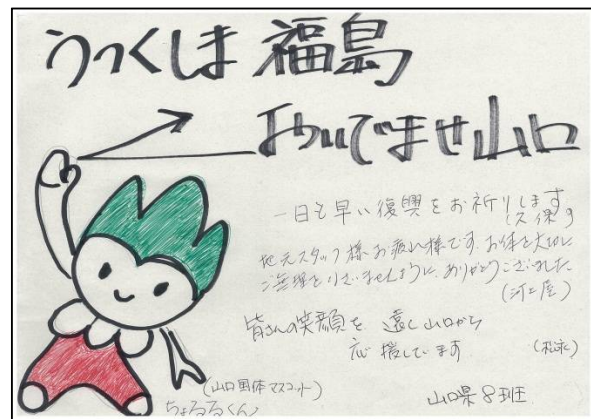 うつくしま 福島
おいでませ山口
一日も早い復興をお祈りします
(久保)
地元スタッフ様お疲れ様です。お体を大切に
ご無理なさいませんように、ありがとうございました
皆さんの笑顔を 遠く山口から
応援しています (松永)
(山口国体マスコット)
ちょるるくん
山口県8班